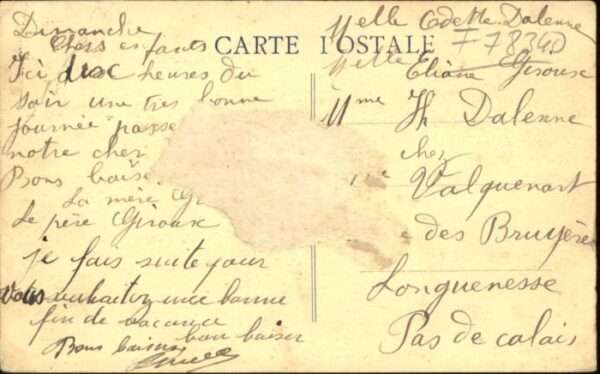 Dimanche
Chers enfants
CARTE POSTALE
Ici dix heures du
soir une très bonne
journée passé
notre cher
Bons baise
La mère Gi
Le père Giroux
je fais suite pour
vous souhaiter une bonne
fin de vacance
bon baiser
Bons baisers
Melle Odette Dalenne
F 78340
Melle Eliane Giroux
Mme Th Dalenne
chez
Valquenart
des Bruyère
Longuenesse
Pas de calais